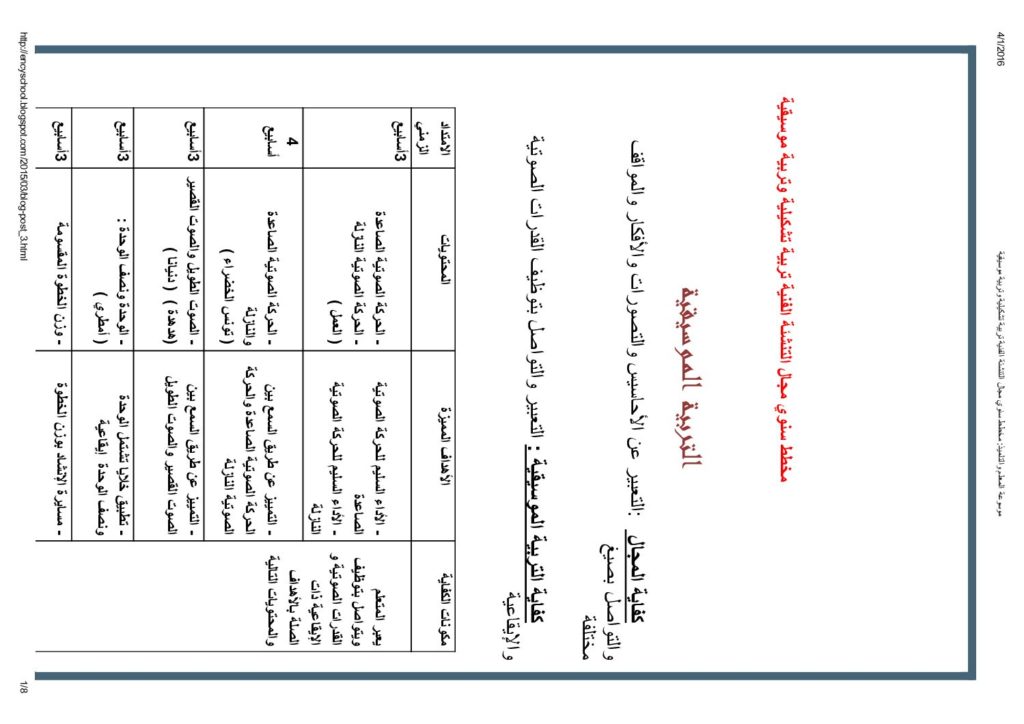 4/1/2016
موسوعة المعلم والتلميذ: مخطط سنوي مجال التنشئة الفنية تربية تشكيلية وتربية موسيقية
مخطط سنوي مجال التنشئة الفنية تربية تشكيلية وتربية موسيقية
التربية الموسيقية
كفاية المجال :التعبير عن الأحاسيس والتصورات والأفكار والمواقف
والتواصل بصيغ
مختلفة
كفاية التربية الموسيقية : التعبير والتواصل بتوظيف القدرات الصوتية
والإيقاعية
مكونات الكفاية
الأهداف المميزة
المحتويات
الامتداد
الزمني
يعبر المتعلم
ويتواصل بتوظيف
القدرات الصوتية و
الإيقاعية ذات
الصلة بالأهداف
والمحتويات التالية
- الأداء السليم للحركة الصوتية
الصاعدة
- الأداء السليم للحركة الصوتية
النازلة
- الحركة الصوتية الصاعدة
- الحركة الصوتية النازلة
( العمل )
3أسابيع
- التمييز عن طريق السمع بين
الحركة الصوتية الصاعدة والحركة
الصوتية النازلة
- الحركة الصوتية الصاعدة
والنازلة
( تونس الخضراء )
4
أسابيع
- التمييز عن طريق السمع بين
الصوت القصير والصوت الطويل
- الصوت الطويل والصوت القصير
(هدهدة ) ( دنيانا )
3أسابيع
- تطبيق خلايا تشتمل الوحدة
ونصف الوحدة إيقاعية
- الوحدة ونصف الوحدة :
( أمطري )
3أسابيع
- مسايرة الإنشاد بوزن الخطوة
- وزن الخطوة المقسومة
3أسابيع
http://encyschool.blogspot.com/2015/03/blog-post_3.html
1/8